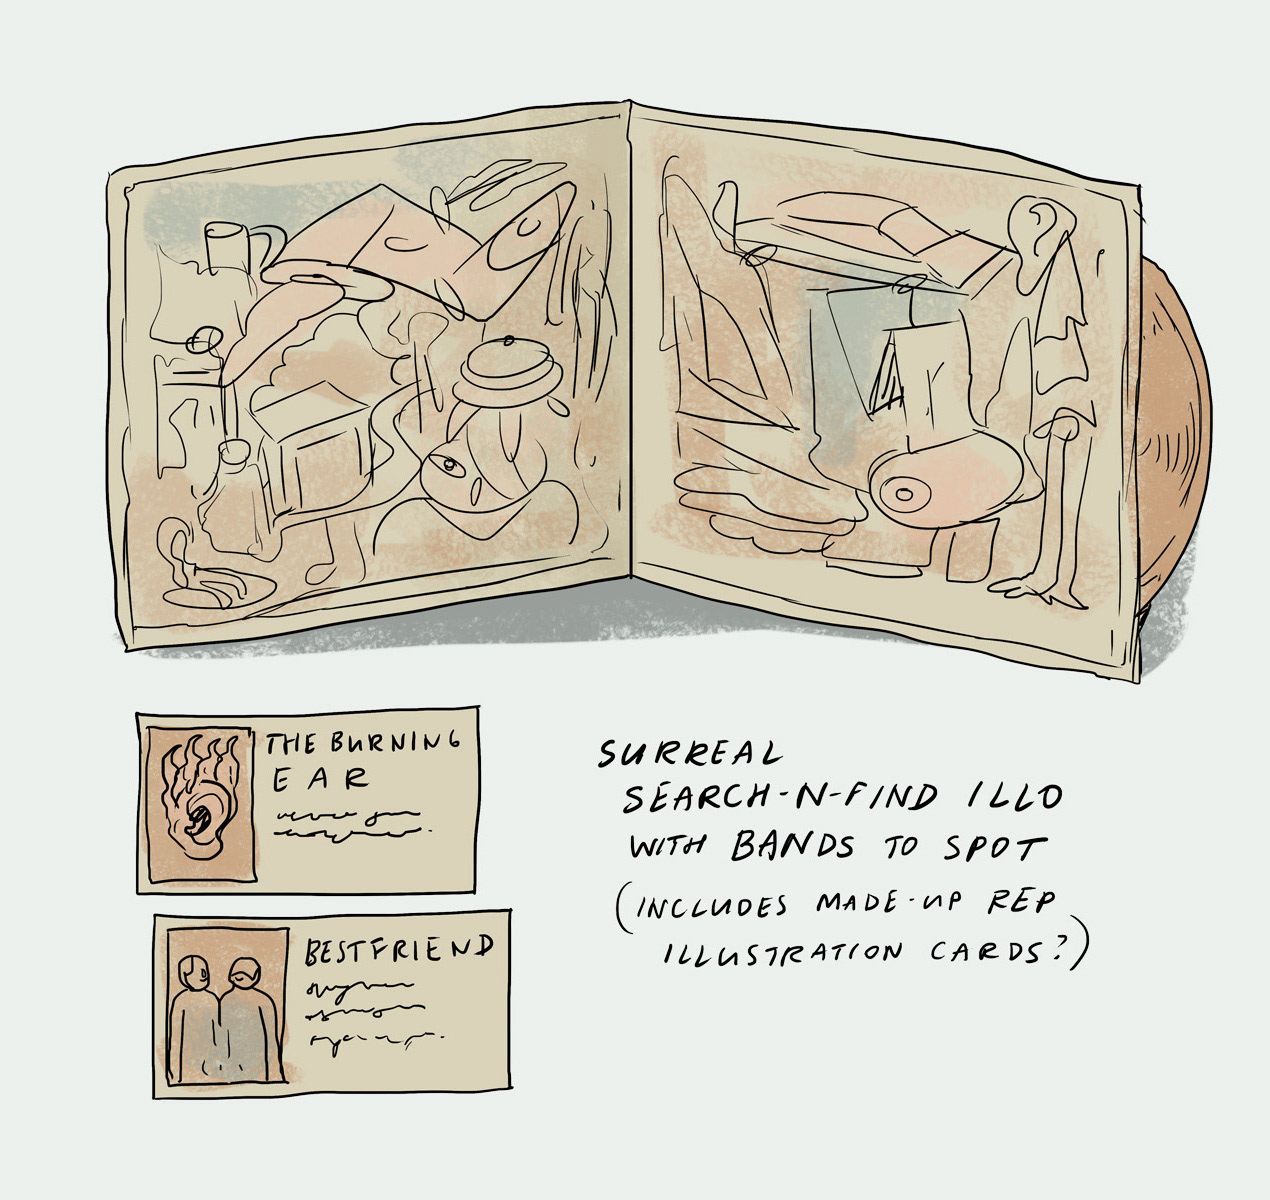 THE BURNING
EAR
BESTFRIEND
SURREAL
SEARCH-N-FIND ILLO
WITH BANDS TO SPOT
(INCLUDES MADE-UP REP
ILLUSTRATION CARDS?)